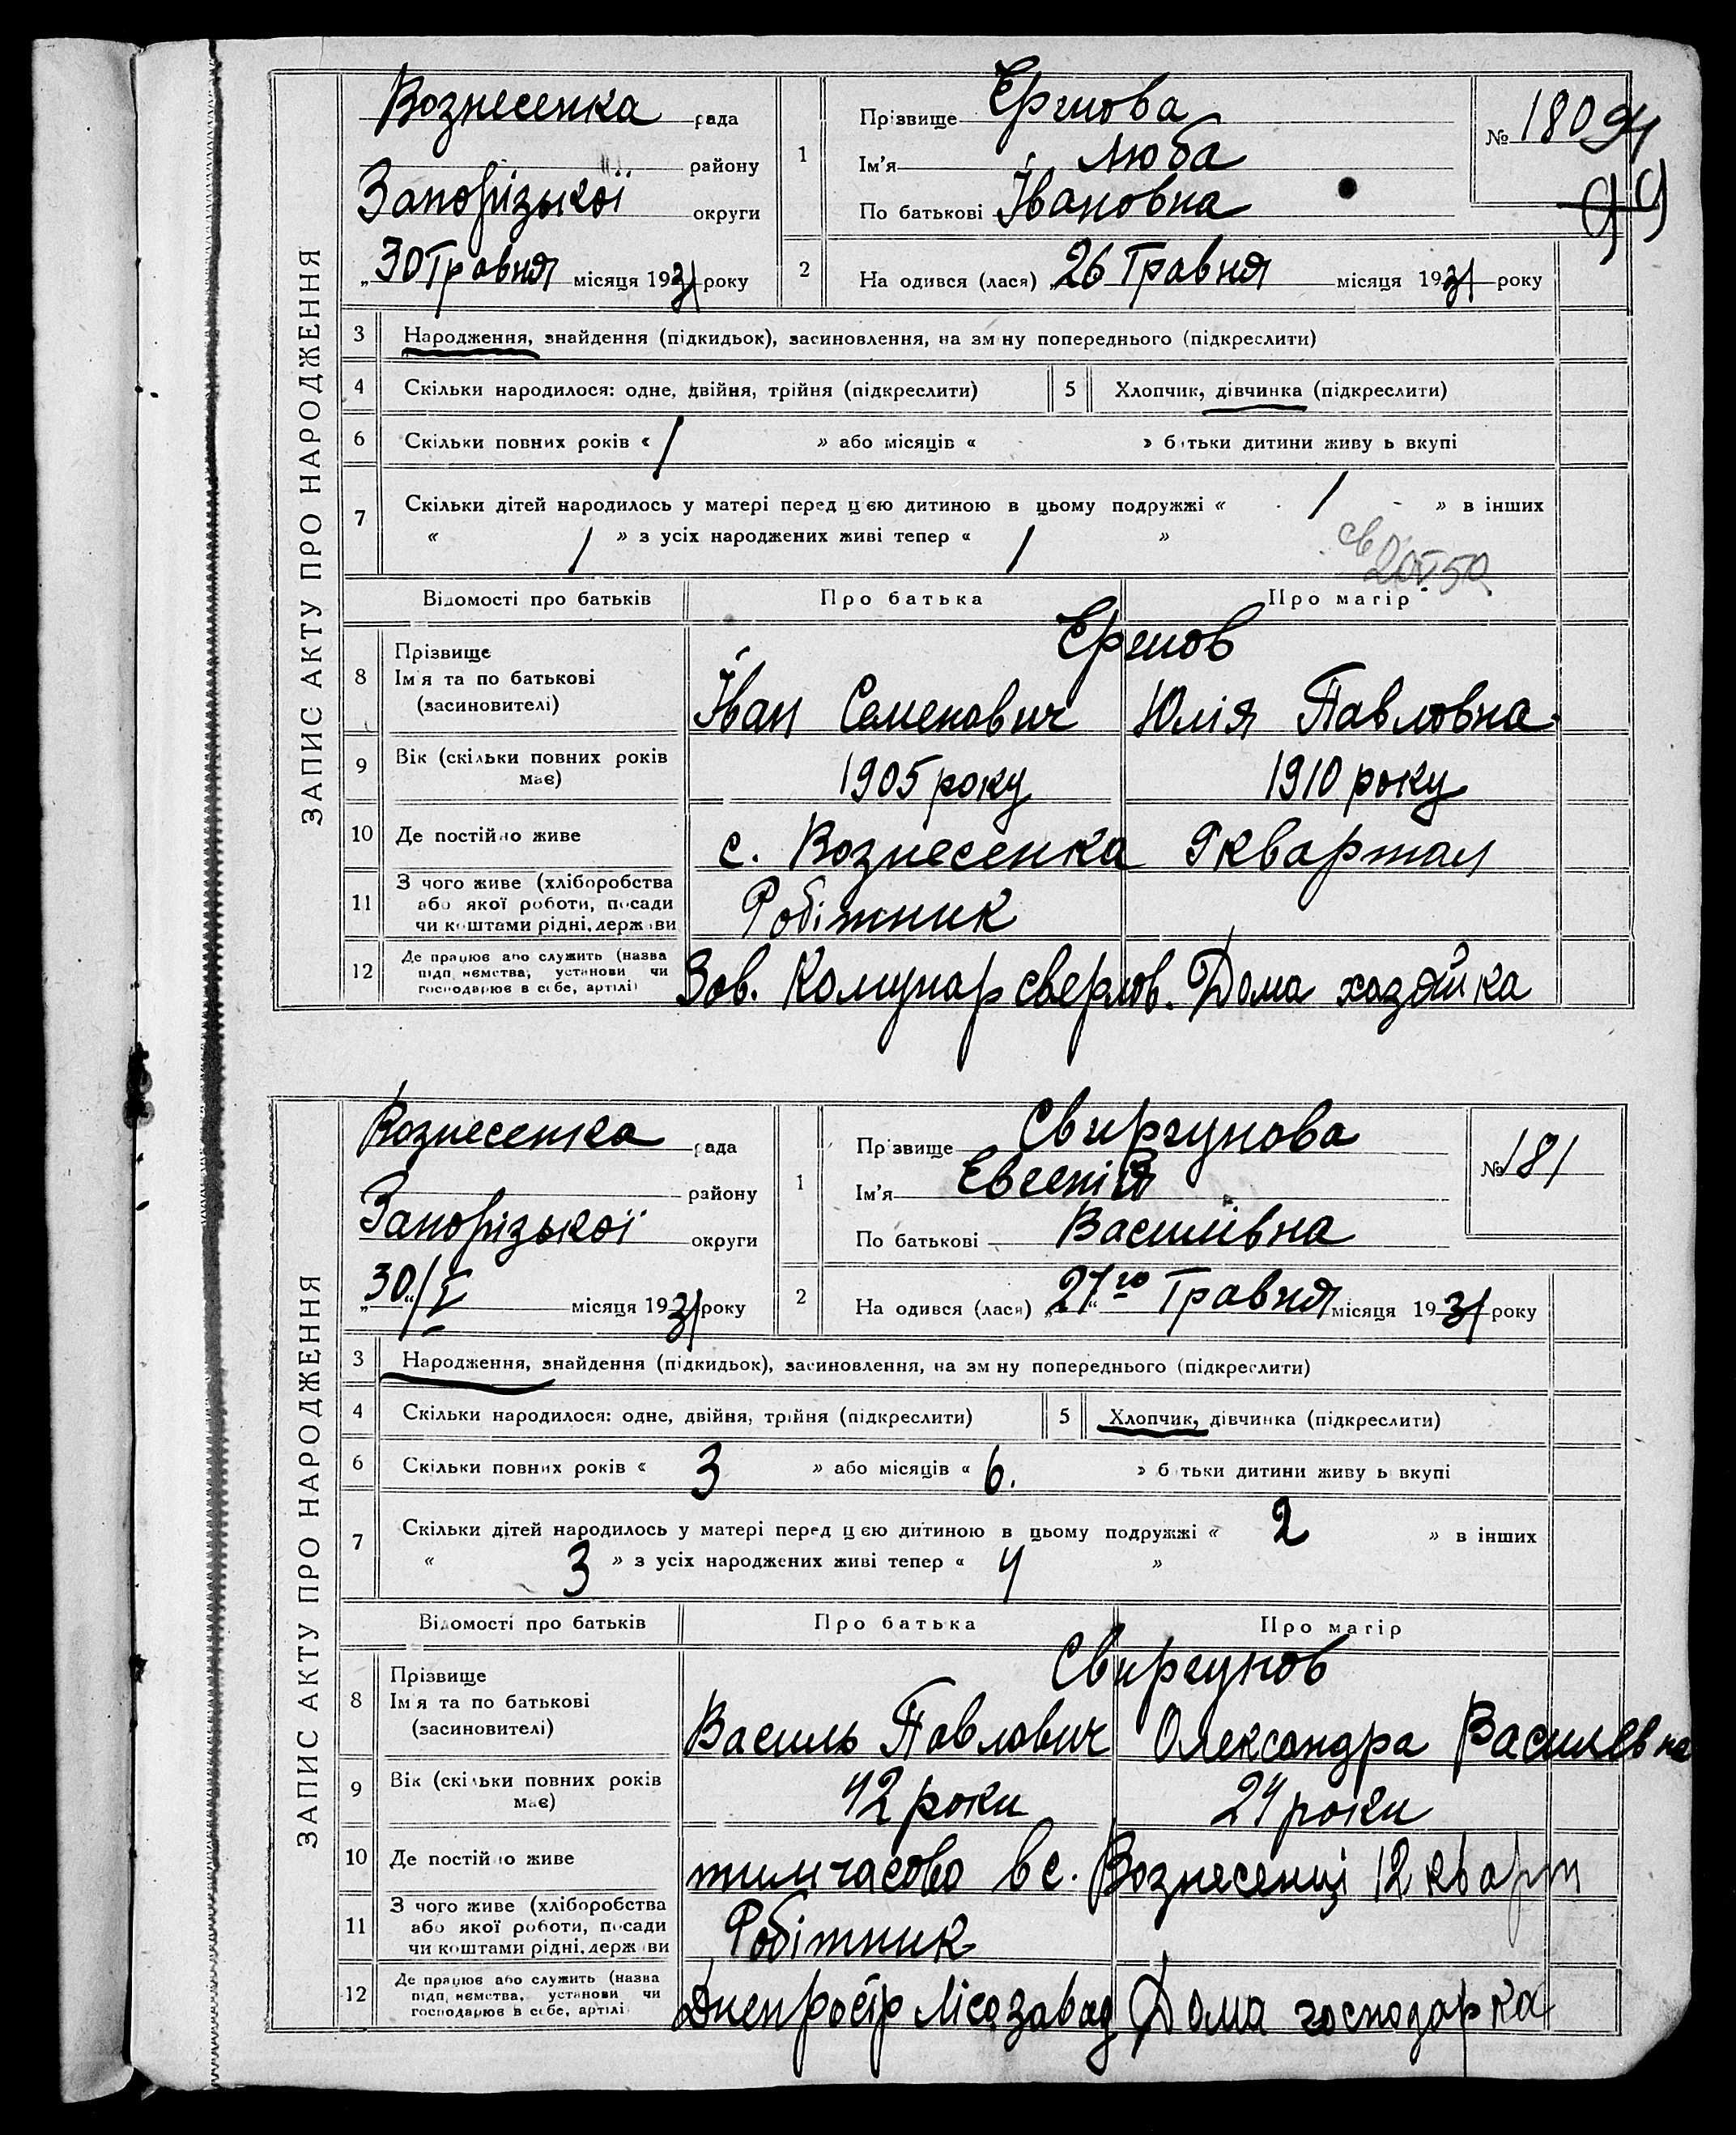 ЗАПИС АКТУ ПРО НАРОДЖЕННЯ
Вознесенка рада
району
Запорізької округи
„30 Травня місяця 1931 року
1
Прізвище Єршова
Ім'я Люба
По батькові Івановна
№ 180
94
99
2
На одився (лася) „26 Травня місяця 1931 року
3 Народження, знайдення (підкидьок), засиновлення, на зм ну попереднього (підкреслити)
4 Скільки народилося: одне, двійня, трійня (підкреслити) 5 Хлопчик, дівчинка (підкреслити)
6 Скільки повних років « / » або місяців « » б тьки дитини живу ь вкупі
7 Скільки дітей народилось у матері перед ц єю дитиною в цьому подружжі « / » в інших
« / » з усіх народжених живі тепер « / »
Відомості про батьків Про батька Про матір
Єршов
8 Прізвище
Ім'я та по батькові
(засиновителі)
Іван Семенович Юлія Павловна
9 Вік (скільки повних років має) 1905 року 1910 року
10 Де постійно живе с. Вознесенка 9 квартал
11 З чого живе (хліборобства
або якої роботи, посади
чи коштами рідні, держави
Робітник
12 Де працює або служить (назва
підп иємства, установи чи
господарює в себе, артілі)
Зав. Комунар сверлов. Дома хазяйка
ЗАПИС АКТУ ПРО НАРОДЖЕННЯ
Вознесенка рада
району
Запорізької округи
„30“/V місяця 1931 року
1
Пр звище Свиргунова
Ім'я Евгенія
По батькові Василівна
№ 181
2
На одився (лася) „27го“ Травня місяця 1931 року
3 Народження, знайдення (підкидьок), засиновлення, на зм ну попереднього (підкреслити)
4 Скільки народилося: одне, двійня, трійня (підкреслити) 5 Хлопчик, дівчинка (підкреслити)
6 Скільки повних років « 3 » або місяців « 6. » б тьки дитини живу ь вкупі
7 Скільки дітей народилось у матері перед ц єю дитиною в цьому подружжі « 2 » в інших
« 3 » з усіх народжених живі тепер « 4 »
Відомості про батьків Про батька Про матір
Свиргунов
8 Прізвище
Ім'я та по батькові
(засиновителі)
Василь Павлович Олександра Васильевна
9 Вік (скільки повних років має) 42 роки 24 роки
10 Де постій о живе тимчасово в с. Вознесенці 12 кварт
11 З чого живе (хліборобства
або якої роботи, посади
чи коштами рідні, держ ви
Робітник
12 Де працює або служить (назва
підп иємства, установи чи
господарює в себе, артілі
Днепросір Лісозавод Дома господарка